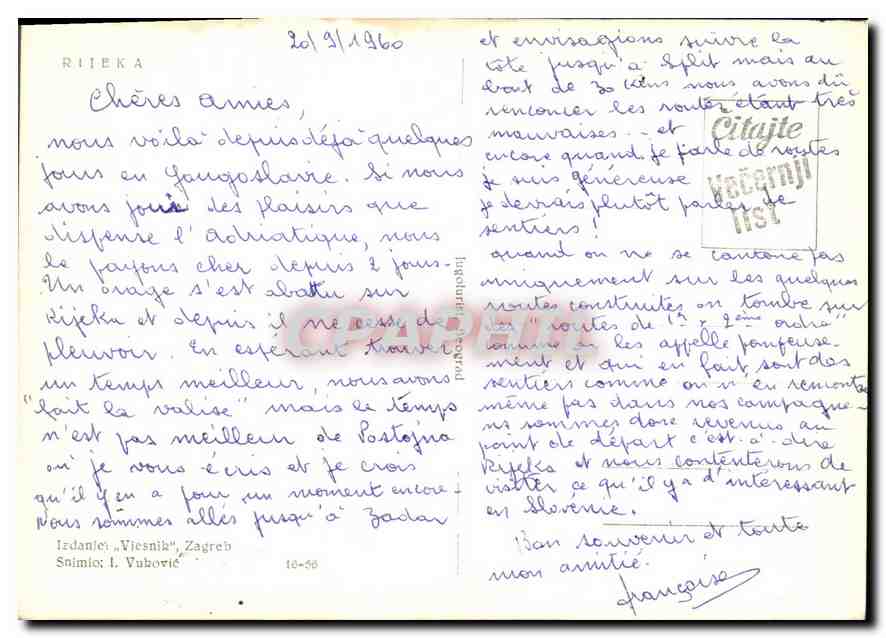 RIJEKA
20/9/1960
Chères amies,
nous voilà depuis déjà quelques
jours en Yougoslavie. Si nous
avons joui des plaisirs que
dispense l'Adriatique, nous
le payons cher depuis 2 jours.
Un orage s'est abattu sur
Rijeka et depuis il ne cesse de
pleuvoir. En espérant trouver
un temps meilleur, nous avons
"fait la valise" mais le temps
n'est pas meilleur de Postojna
où je vous écris et je crois
qu'il y en a pour un moment encore -
Nous sommes allés jusqu'à Zadar
Izdanje: „Vjesnik", Zagreb
Snimio: I. Vuković
16-56
Jugoturist Beograd
et envisagions suivre la
côte jusqu'à Split mais au
bout de 30 kms nous avons dû
renoncer les routes étant très
mauvaises - et
encore quand je parle de routes
je suis généreuse
je devrais plutôt parler de
sentiers !
quand on ne se cantone pas
uniquement sur les quelques
routes construites on tombe sur
des "routes de 1er & 2ème ordre"
comme on les appelle pompeuse-
ment et qui en fait sont des
sentiers comme on n'en rencontre
même pas dans nos campagnes
ns sommes donc revenus au
point de départ c'est-à-dire
Rijeka et nous contenterons de
visiter ce qu'il y a d'intéressant
en Slovénie.
Bon souvenir et toute
mon amitié.
françoise
Čitajte
Večernji
list
CPARAMA